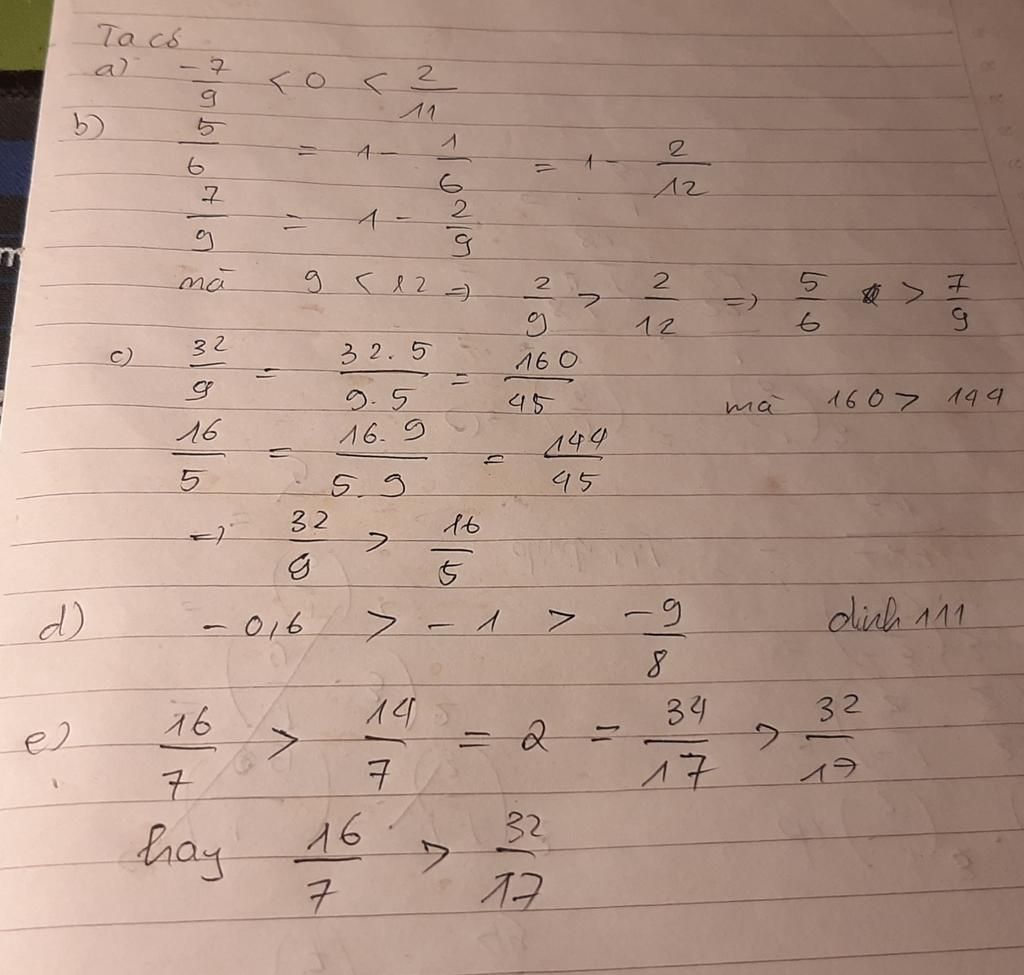 Ta có
a) -7/9 < 0 < 2/11
b) 5/6 = 1 - 1/6 = 1 - 2/12
7/9 = 1 - 2/9
mà 9 < 12 => 2/9 > 2/12 => 5/6 > 7/9
c) 32/9 = 32.5/9.5 = 160/45
mà 160 > 144
16/5 = 16.9/5.9 = 144/45
=> 32/9 > 16/5
d) -0,6 > -1 > -9/8 dinh 111
e) 16/7 > 14/7 = 2 = 34/17 > 32/17
hay 16/7 > 32/17